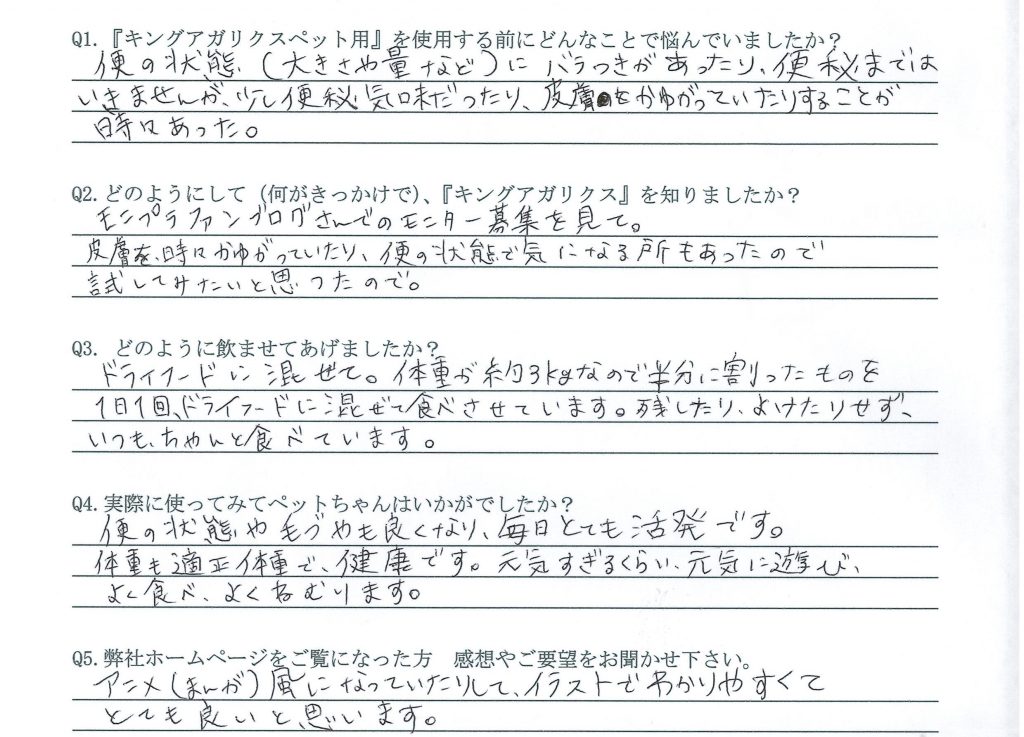 Q1.『キングアガリクスペット用』を使用する前にどんなことで悩んでいましたか？
便の状態（大きさや量など）にバラつきがあったり、便秘までは
いきませんが、少し便秘気味だったり、皮膚をかゆがっていたりすることが
時々あった。
Q2.どのようにして（何がきっかけで）、『キングアガリクス』を知りましたか？
モニプラファンブログさんでのモニター募集を見て。
皮膚を、時々かゆがっていたり、便の状態で気になる所もあったので
試してみたいと思ったので。
Q3. どのように飲ませてあげましたか？
ドライフードに混ぜて。体重が約3kgなので半分に割ったものを
1日1回、ドライフードに混ぜて食べさせています。残したり、よけたりせず、
いつも、ちゃんと食べています。
Q4.実際に使ってみてペットちゃんはいかがでしたか？
便の状態や毛づやも良くなり、毎日とても活発です。
体重も適正体重で、健康です。元気すぎるくらい、元気に遊び、
よく食べ、よくねむります。
Q5.弊社ホームページをご覧になった方　感想やご要望をお聞かせ下さい。
アニメ（まんが）風になっていたりして、イラストでわかりやすくて
とても良いと、思います。